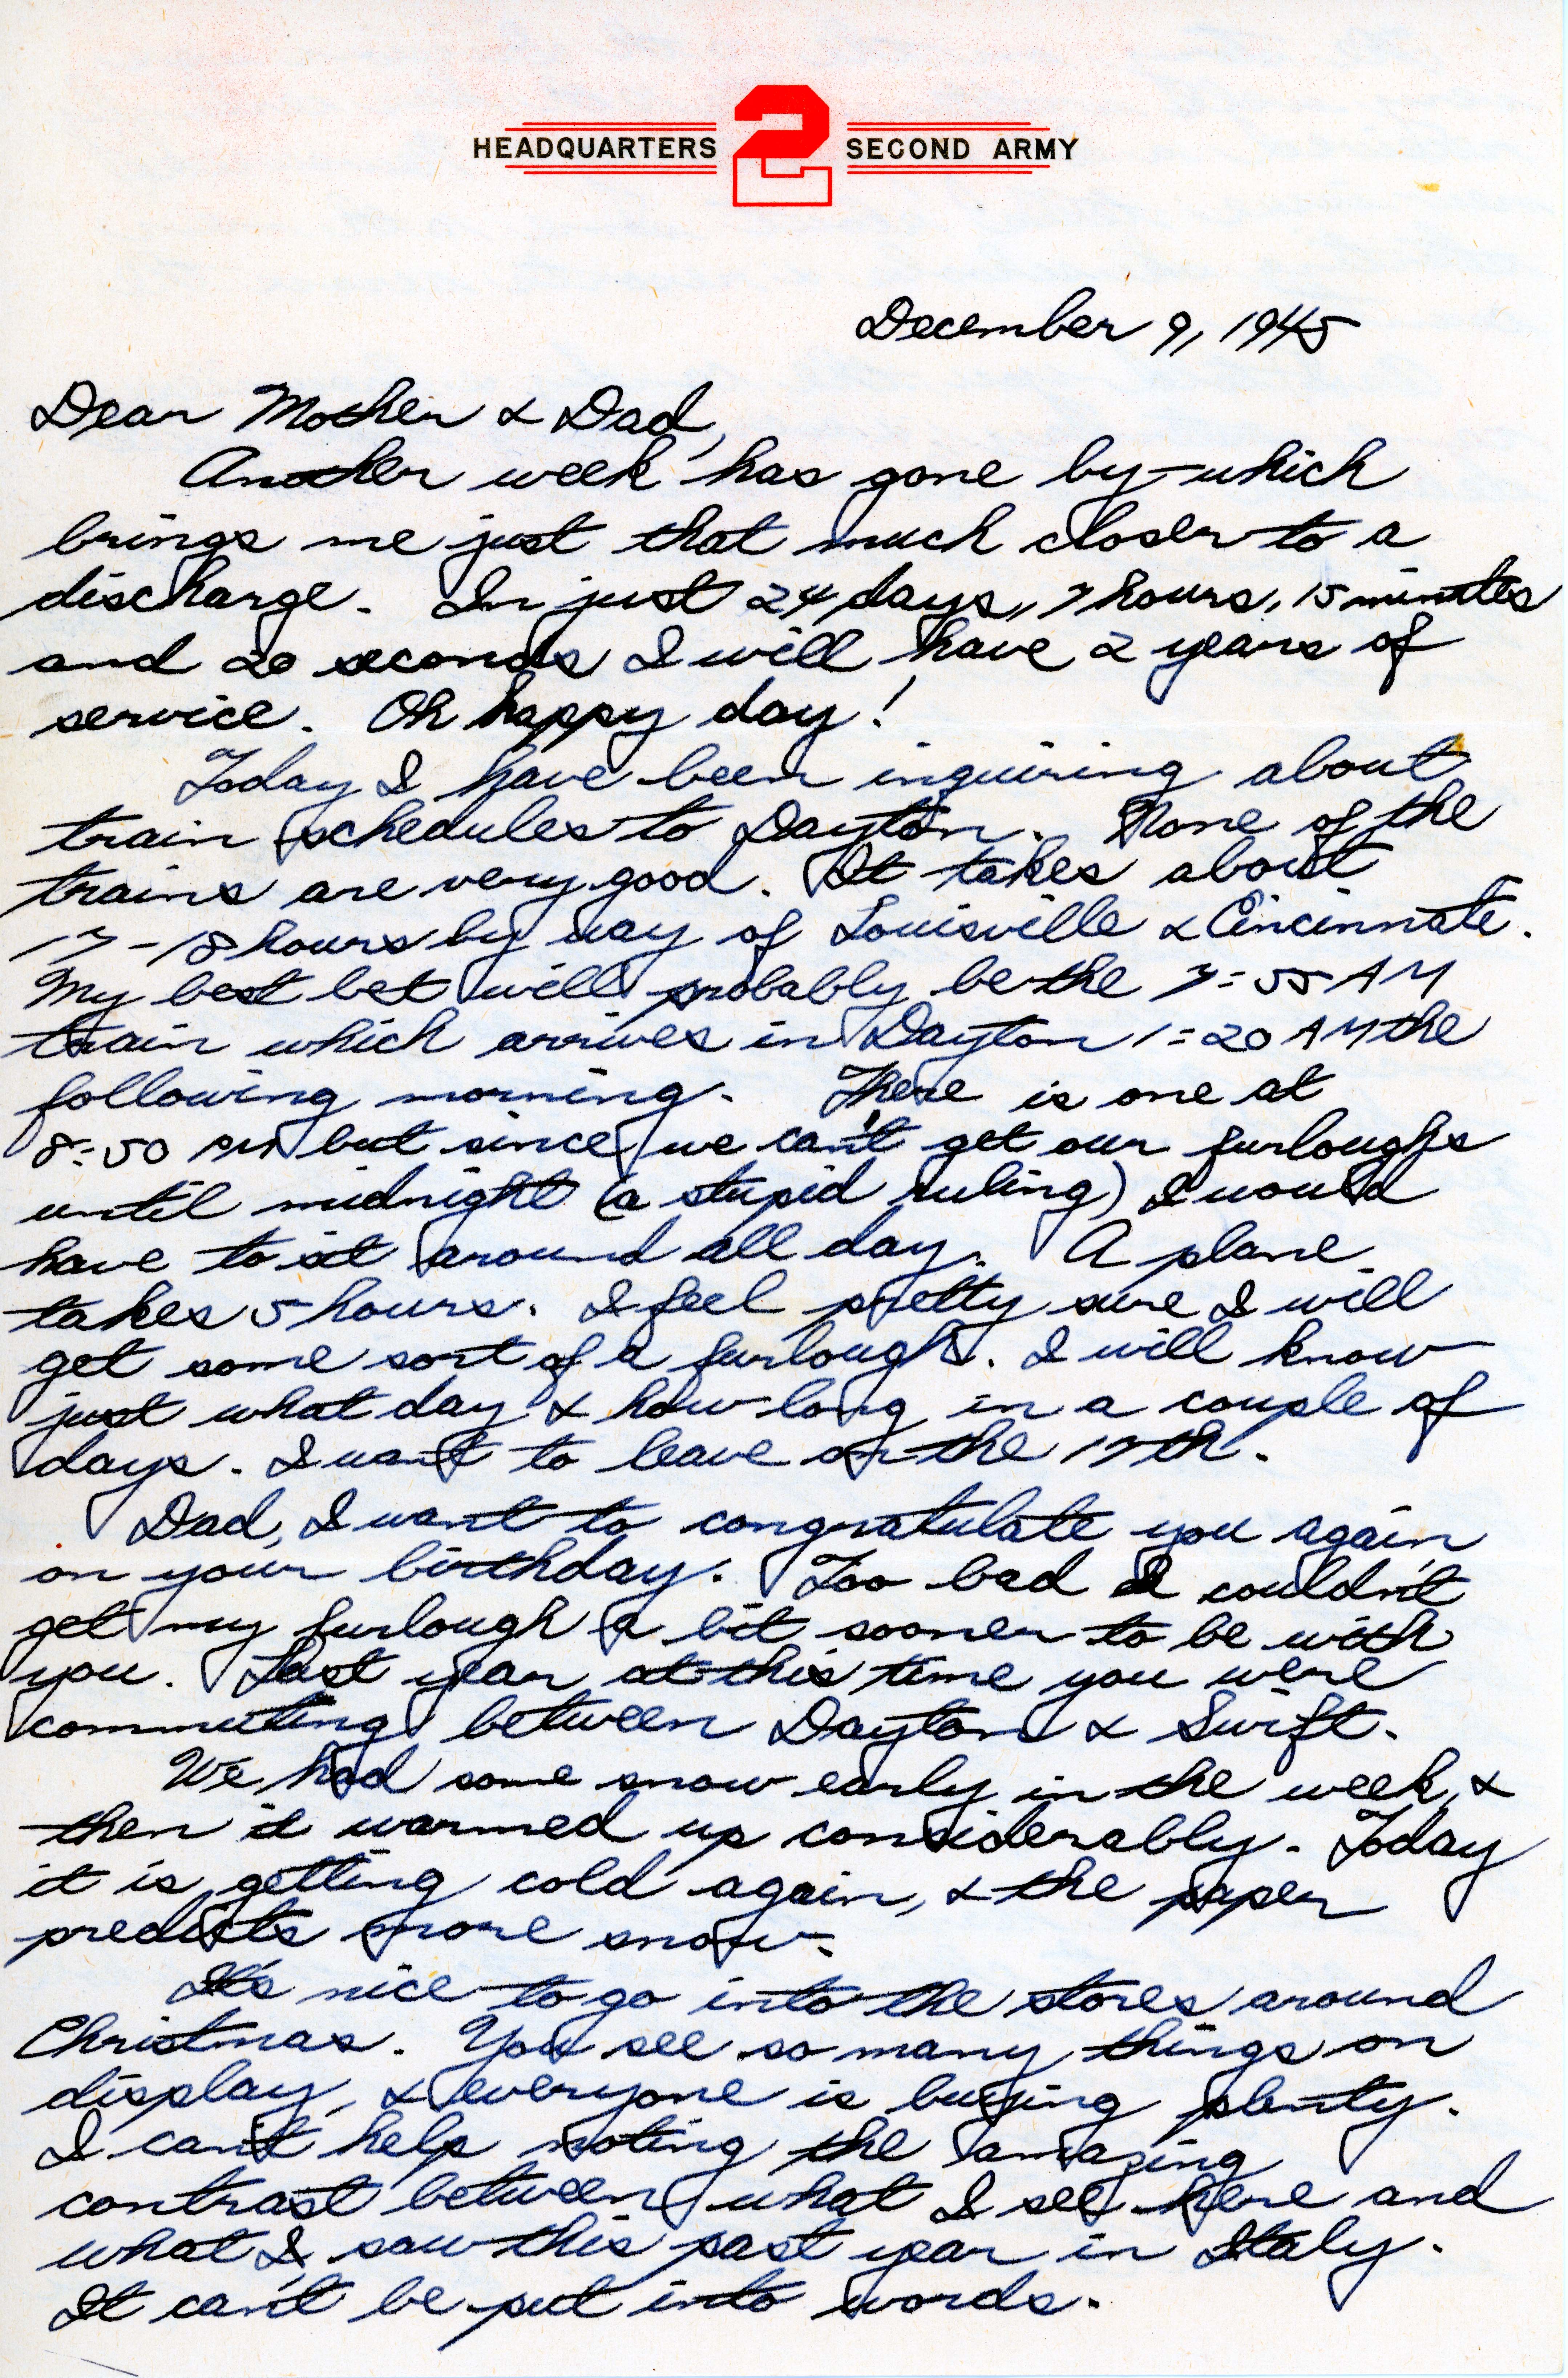 HEADQUARTERS 2 SECOND ARMY
December 9, 1945
Dear Mother & Dad,
Another week has gone by - which
brings me just that much closer to a
discharge. In just 24 days, 7 hours, 15 minutes
and 20 seconds I will have 2 years of
service. Oh happy day!
Today I have been inquiring about
train schedules to Dayton. None of the
trains are very good. It takes about
17-18 hours by way of Louisville & Cincinnati.
My best bet will probably be the 7:55 AM
train which arrives in Dayton 1:20 AM the
following morning. There is one at
8:50 PM but since we can't get our furloughs
until midnight (a stupid ruling) I would
have to sit around all day. A plane
takes 5 hours. I feel pretty sure I will
get some sort of a furlough. I will know
just what day & how long in a couple of
days. I want to leave on the 17th.
Dad, I want to congratulate you again
on your birthday. Too bad I couldn't
get my furlough a bit sooner to be with
you. Last year at this time you were
commuting between Dayton & Swift.
We had some snow early in the week, &
then it warmed up considerably. Today
it is getting cold again, & the paper
predicts more snow.
It's nice to go into the stores around
Christmas. You see so many things on
display, & everyone is buying plenty.
I can't help noting the amazing
contrast between what I see here and
what I saw this past year in Italy.
It can't be put into words.